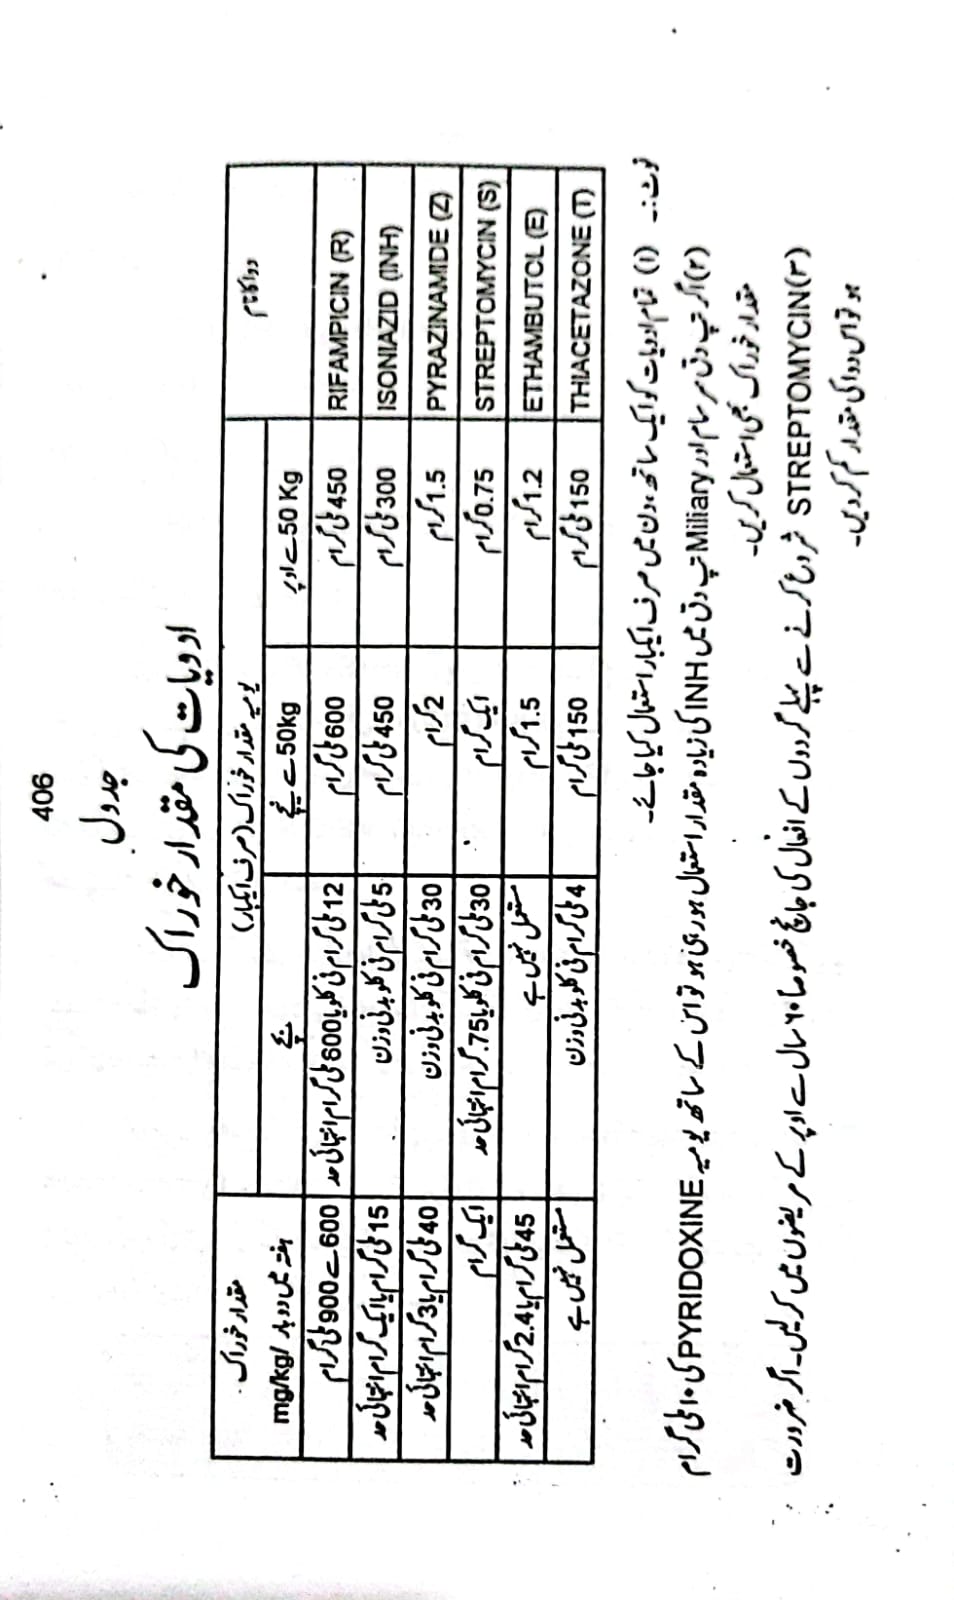 406
جدول
ادویات کی مقدار خوراک
دوا کا نام
یومیہ مقدار خوراک (صرف ایکبار)
مقدار خوراک
50 Kg سے اوپر
50kg سے نیچے
بچے
ہفتہ میں دو بار /mg/kg
RIFAMPICIN (R) 450 ملی گرام 600 ملی گرام 12 ملی گرام فی کلو یا 600 ملی گرام انتہائی حد 600 سے 900 ملی گرام
ISONIAZID (INH) 300 ملی گرام 450 ملی گرام 5 ملی گرام فی کلو بدنی وزن 15 ملی گرام یا ایک گرام انتہائی حد
PYRAZINAMIDE (Z) 1.5 گرام 2 گرام 30 ملی گرام فی کلو بدنی وزن 40 ملی گرام یا 3 گرام انتہائی حد
STREPTOMYCIN (S) 0.75 گرام ایک گرام 30 ملی گرام فی کلو یا .75 گرام انتہائی حد ایک گرام
ETHAMBUTOL (E) 1.2 گرام 1.5 گرام مستعمل نہیں ہے 45 ملی گرام یا 2.4 گرام انتہائی حد
THIACETAZONE (T) 150 ملی گرام 150 ملی گرام 4 ملی گرام فی کلو بدنی وزن مستعمل نہیں ہے
نوٹ:۔ (۱) تمام ادویات کو ایک ساتھ دن میں صرف ایکبار استعمال کیا جائے۔
(۲) اگر تپ دق سرسام اور Miliary تپ دق میں INH کی زیادہ مقدار استعمال ہو رہی ہو تو اس کے ساتھ یومیہ PYRIDOXINE کی ۱۰ ملی گرام
مقدار خوراک بھی استعمال کریں۔
(۳) STREPTOMYCIN شروع کرنے سے پہلے گردوں کے افعال کی جانچ خصوصاً ۶۰ سال سے اوپر کے مریضوں میں کرلیں۔ اگر ضرورت
ہو تو اس دوا کی مقدار کم کردیں۔